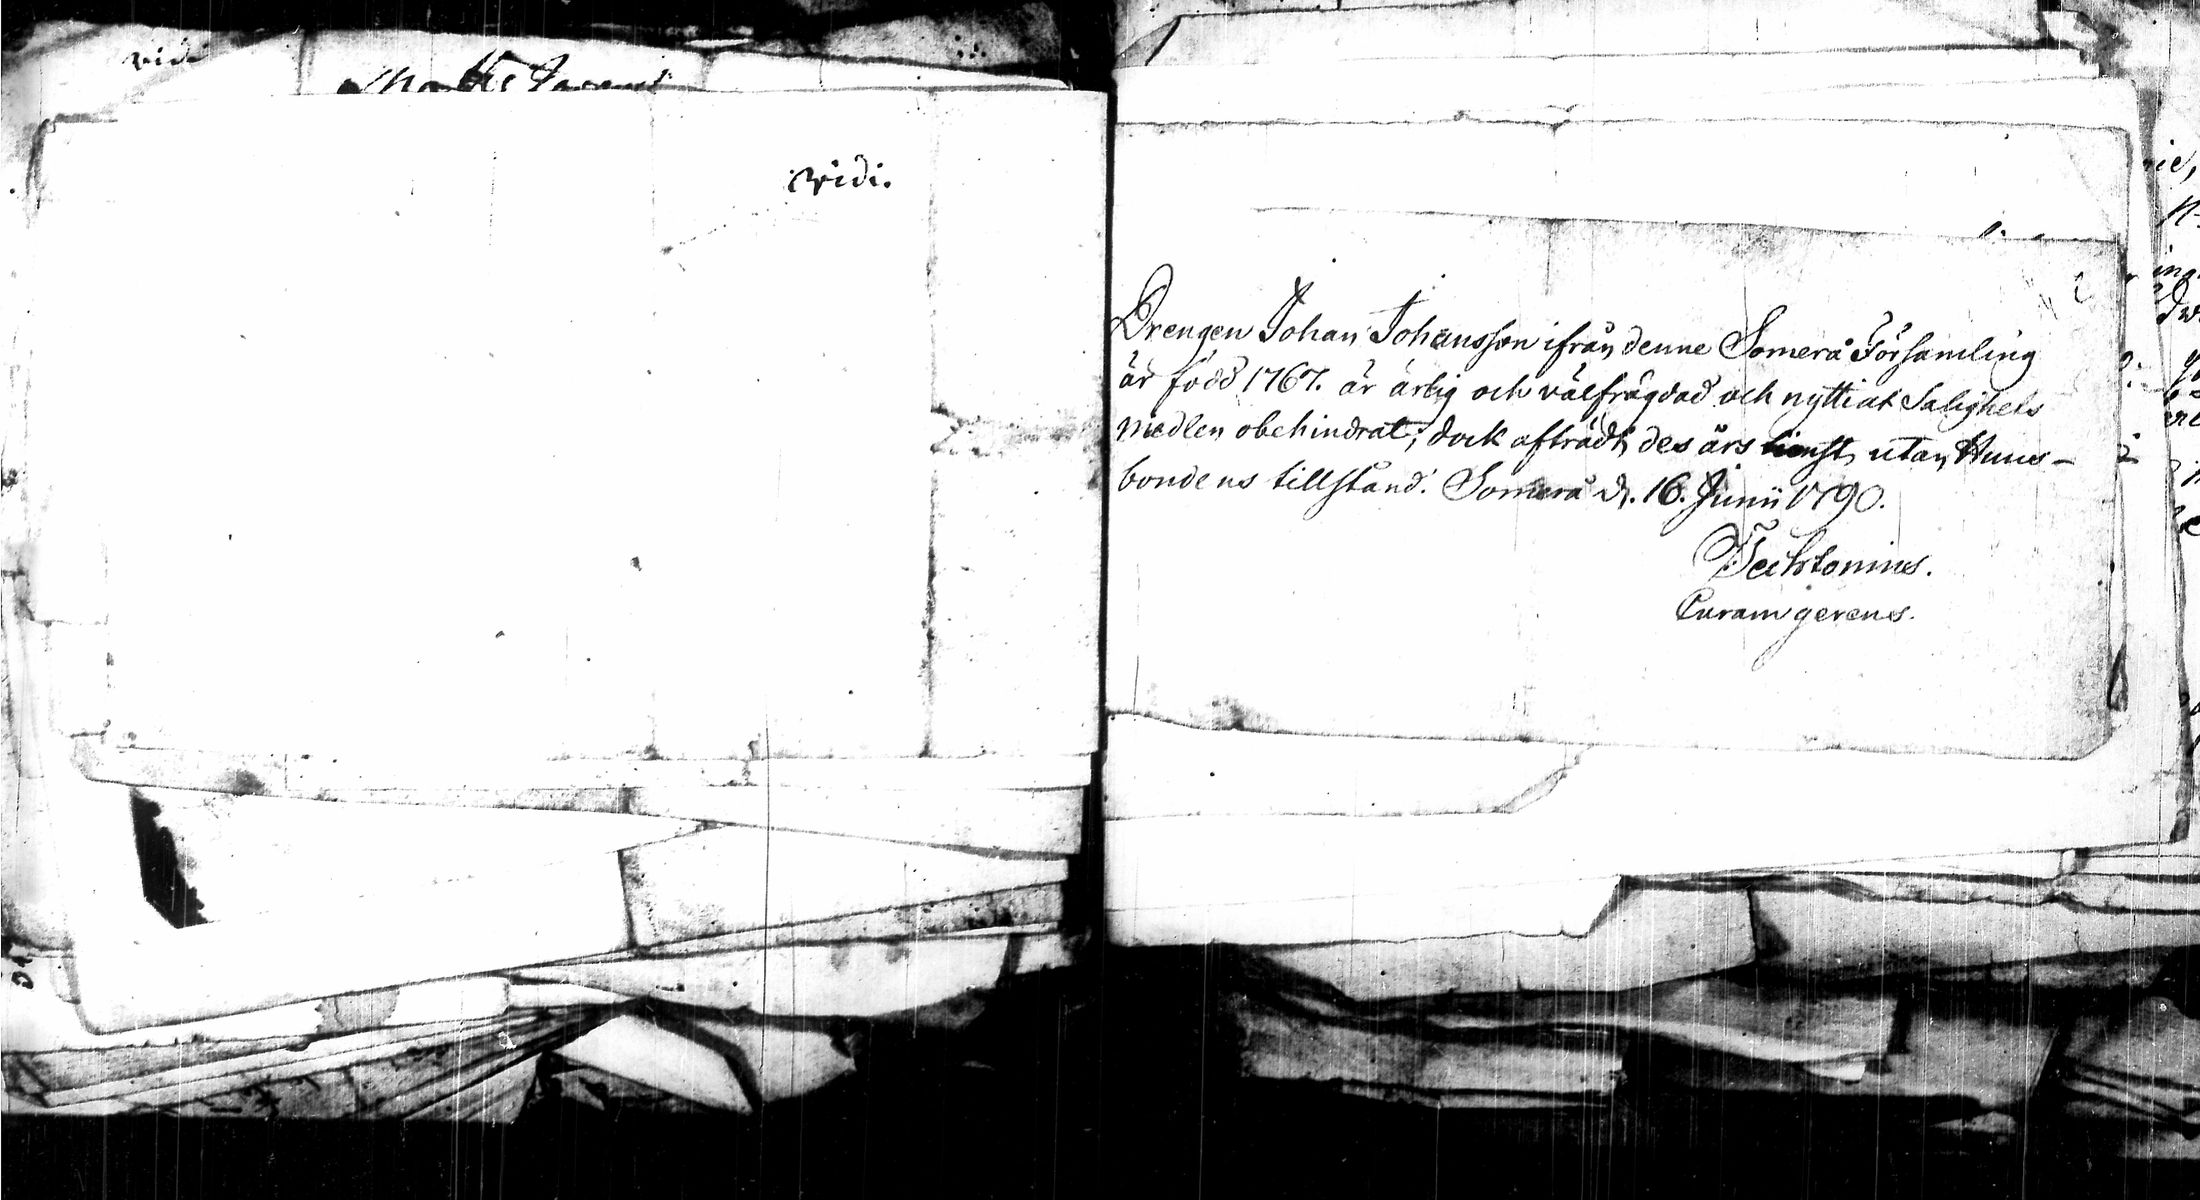 vidi
vidi.
Drengen Johan Johansson ifrån denne Somerå Församling
är född 1767. är ärlig och välfrägdad och nyttiat Salighets
medlen obehindrat; dock afträdt des års tienst utan Huus-
bondens tillstånd. Somerå d. 16. Junii 1790.
Curam gerens.